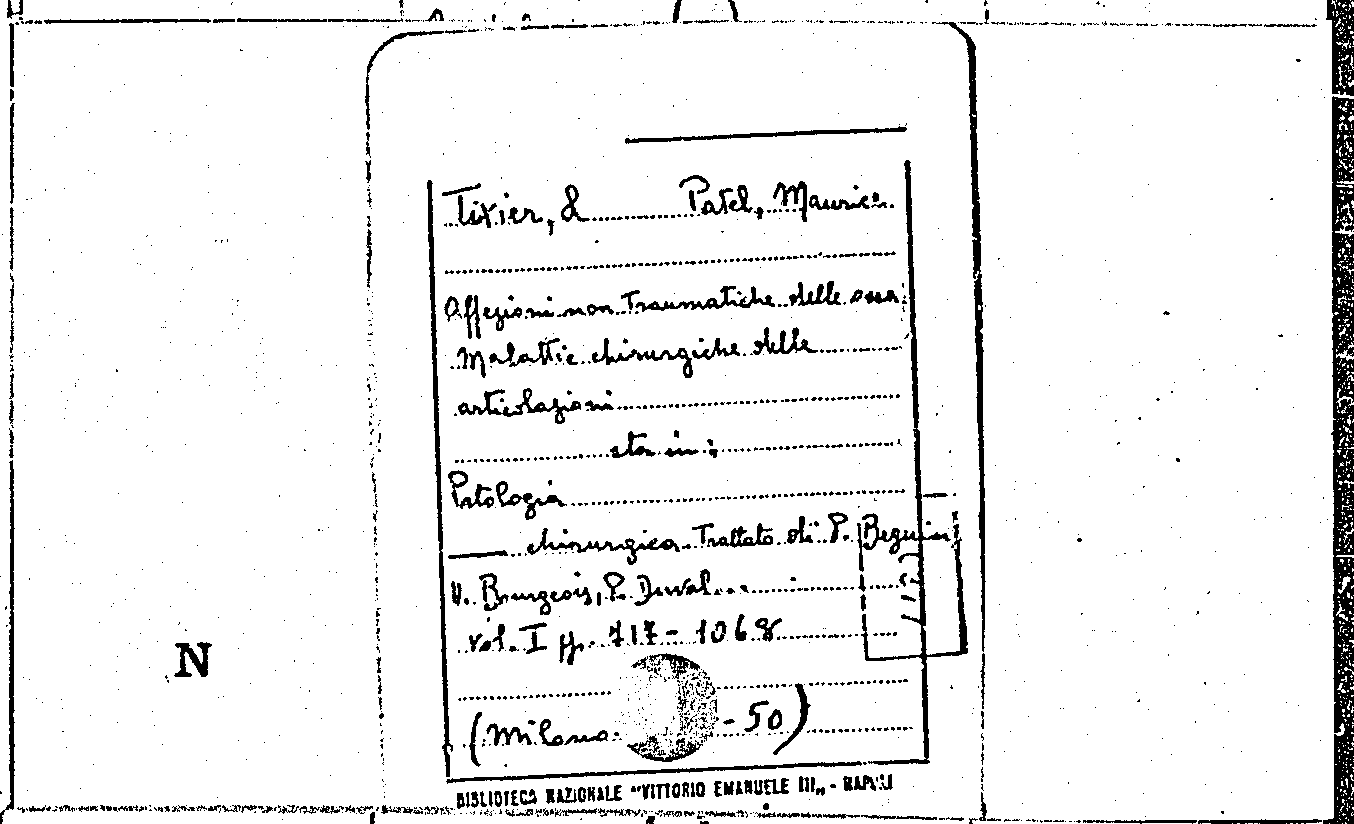 Tixier, L Patel, Maurice
Affezioni non traumatiche delle ossa.
Malattie chirurgiche delle
articolazioni
sta in:
Patologia
chirurgica. Trattato di P. Beguin
V. Bourgeois, P. Duval...
vol. I pp. 717-1068
(Milano -50)
N
BIBLIOTECA NAZIONALE "VITTORIO EMANUELE III„ - NAPOLI